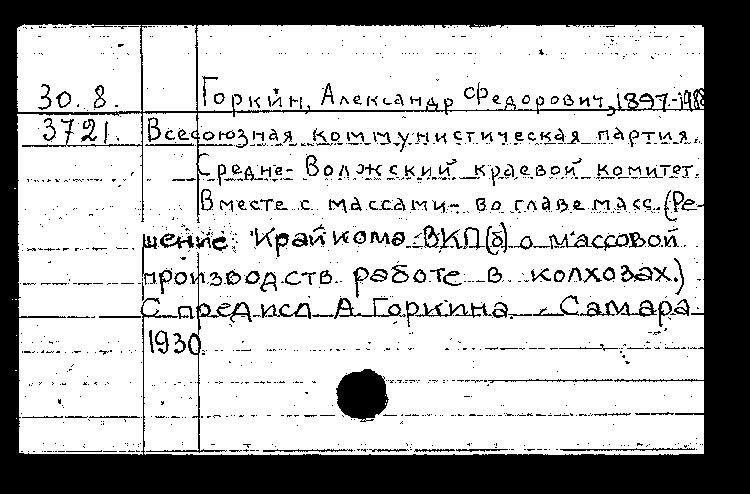 30.8. Горкин, Александр Федорович, 1897-1988
3721. Всесоюзная коммунистическая партия.
Средне-Волжский краевой комитет.
Вместе с массами - во главе масс. (Ре-
шение Крайкома ВКП(б) о массовой
производств. работе в колхозах.)
С предисл. А. Горкина. - Самара
1930.